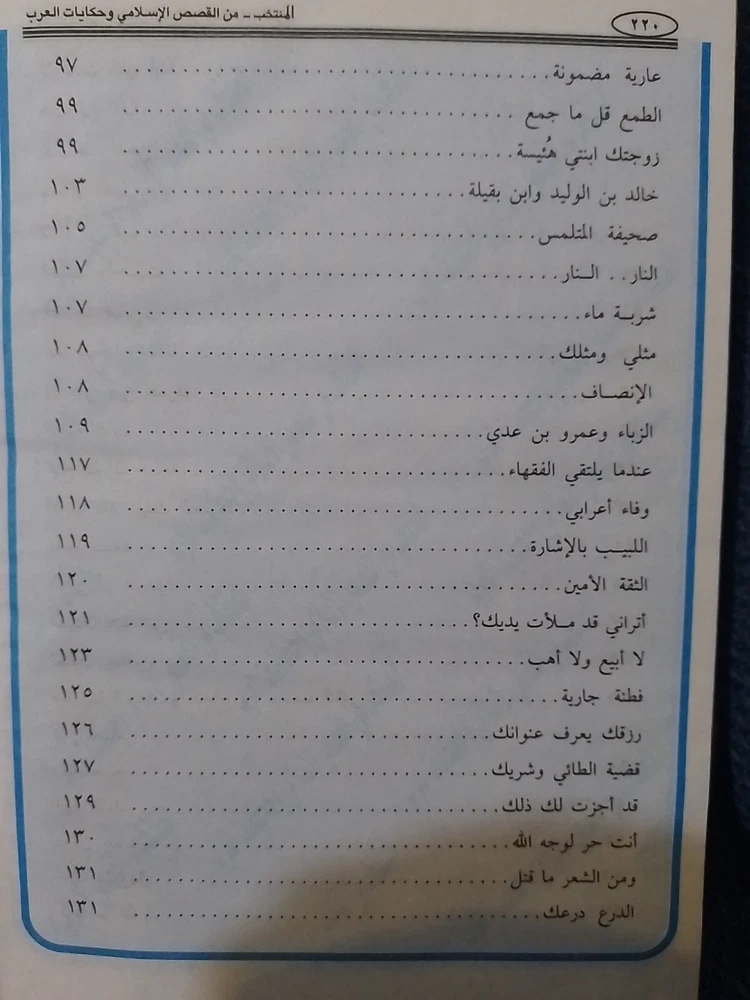 ٢٢٠
المنتخب - من القصص الإسلامي وحكايات العرب
عارية مضمونة ٩٧
الطمع قل ما جمع ٩٩
زوجتك ابنتي هُنَيسة ٩٩
خالد بن الوليد وابن بقيلة ١٠٣
صحيفة المتلمس ١٠٥
النار.. النار ١٠٧
شربة ماء ١٠٧
مثلي ومثلك ١٠٨
الإنصاف ١٠٨
الزباء وعمرو بن عدي ١٠٩
عندما يلتقي الفقهاء ١١٧
وفاء أعرابي ١١٨
اللبيب بالإشارة ١١٩
الثقة الأمين ١٢٠
أتراني قد ملأت يديك؟ ١٢١
لا أبيع ولا أهب ١٢٣
فطنة جارية ١٢٥
رزقك يعرف عنوانك ١٢٦
قضية الطائي وشريك ١٢٧
قد أجزت لك ذلك ١٢٩
أنت حر لوجه الله ١٣٠
ومن الشعر ما قتل ١٣١
الدرع درعك ١٣١